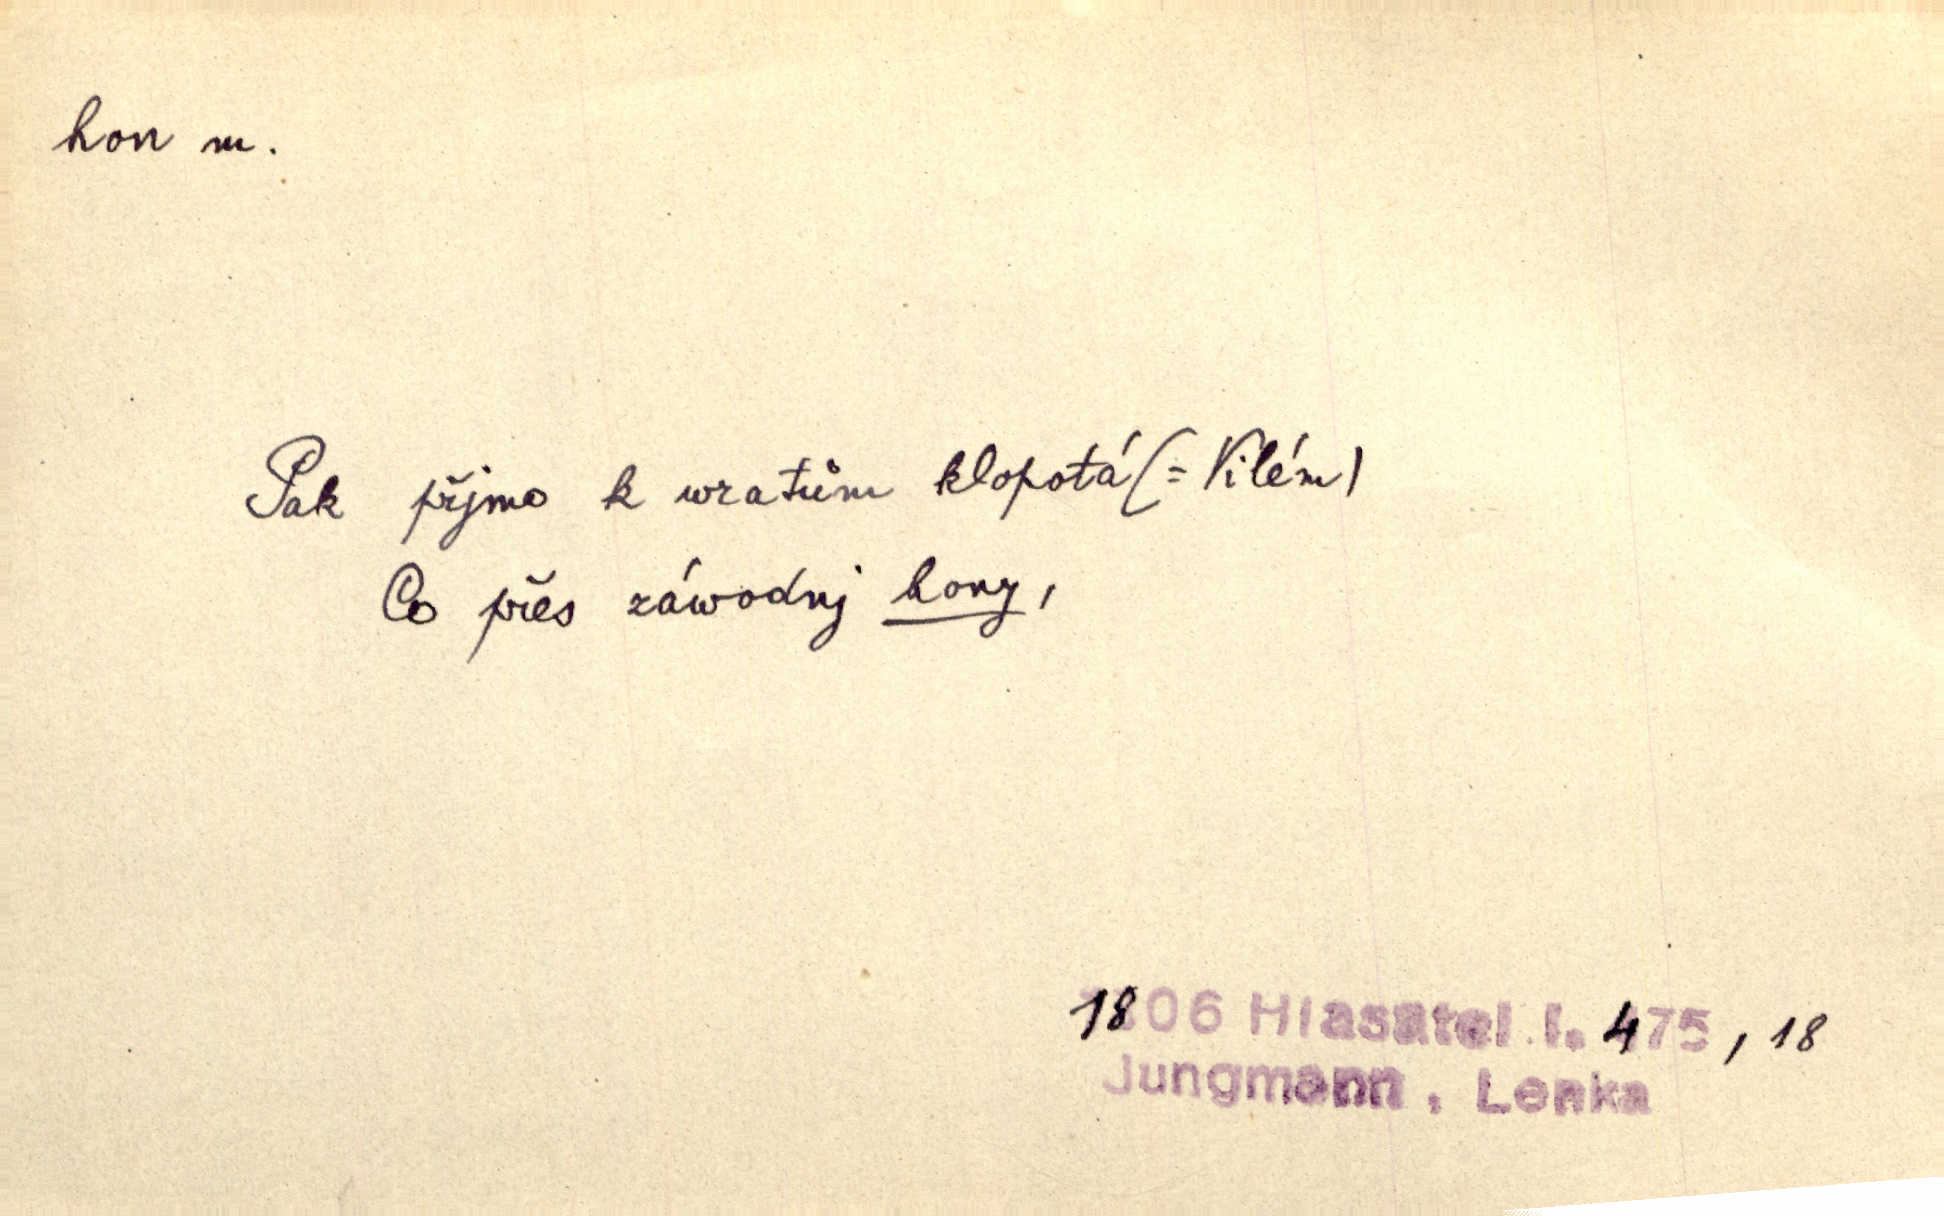 hon m.
Pak přjmo k wratům klopotá (= Vilém)
Co přes záwodnj hony,
1806 Hlasatel I. 475, 18
Jungmann, Lenka